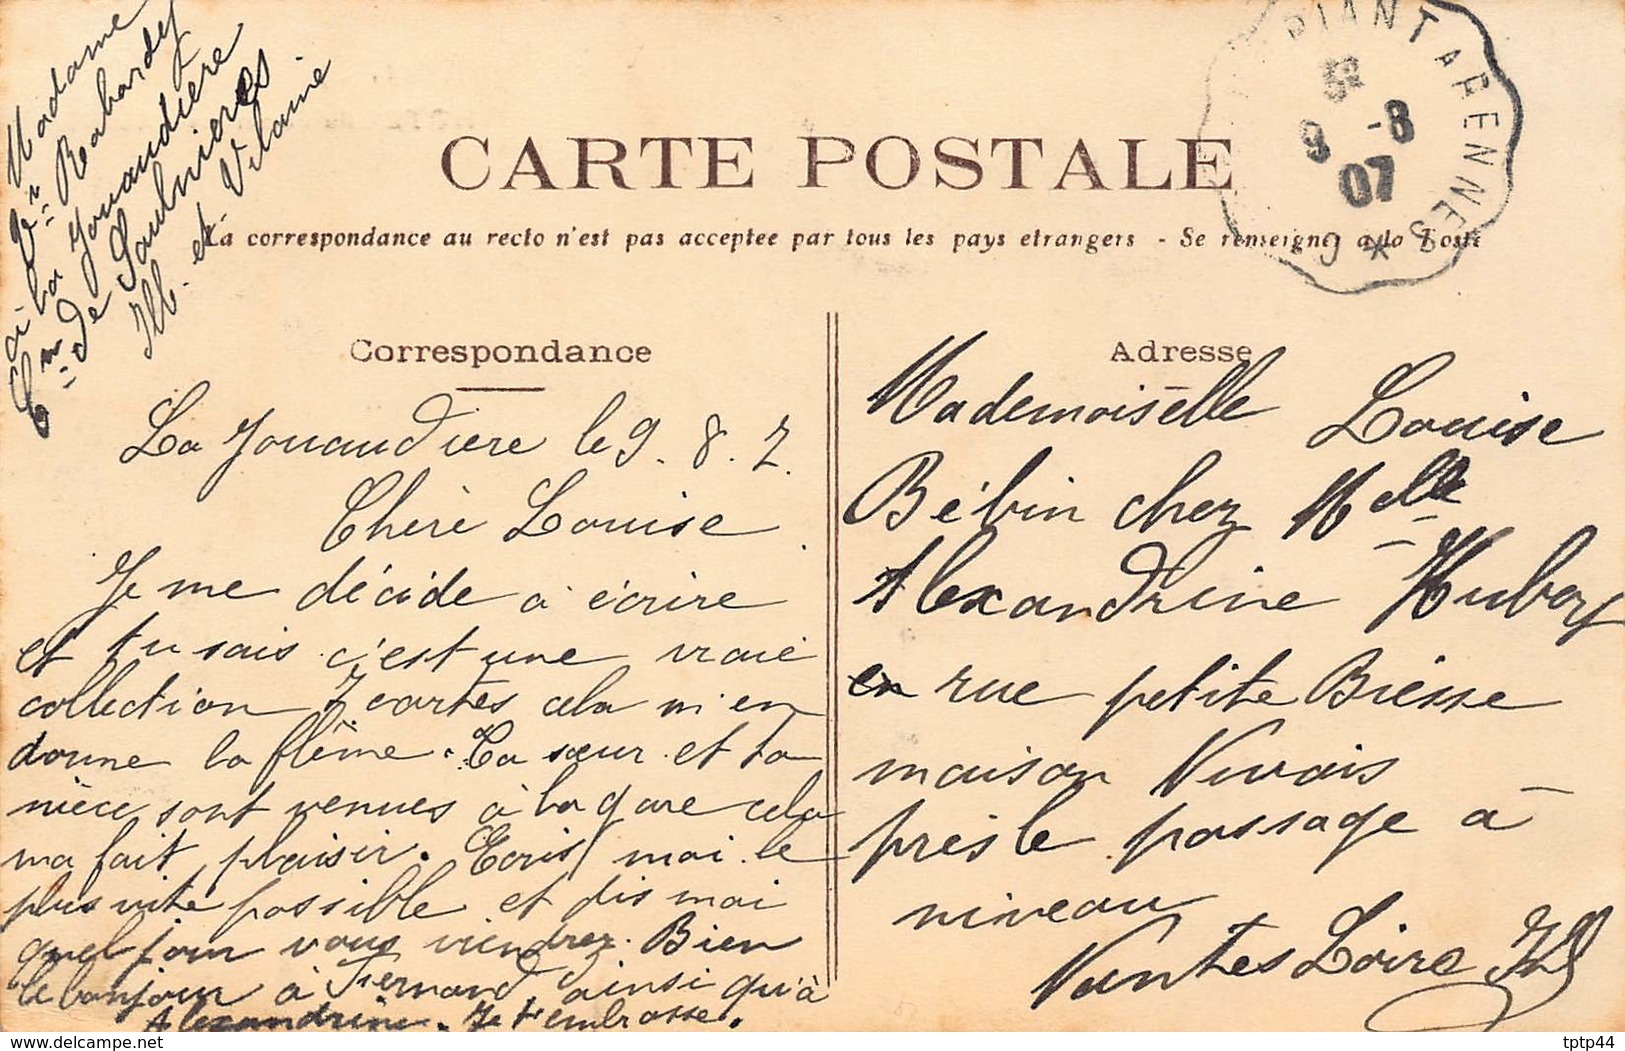 Madame
Vve Rabardey
à la Jouaudière
Cne de Saulnieres
Ill. et Vilaine
CARTE POSTALE
La correspondance au recto n'est pas acceptee par tous les pays etrangers - Se renseigner a la Poste
PIANT A RENNES
5E
9 -8
07
Correspondance
La Jouaudiere le 9. 8. 7.
Chère Louise
Je me décide à écrire
et tu sais c'est une vraie
collection 7 cartes cela m'en
donne la flême. Ta sœur et ta
nièce sont venues à la gare cela
ma fait plaisir. Ecris moi le
plus vite possible et dis moi
quel jour vous viendrez. Bien
le bonjour à Fernand ainsi qu'à
Alexandrine. Je t'embrasse.
Adresse
Mademoiselle Louise
Bébin chez Melle
Alexandrine Hubert
en rue petite Biesse
maison Vivais
près le passage à
niveau
Nantes Loire Inf
delcampe.net
tptp44